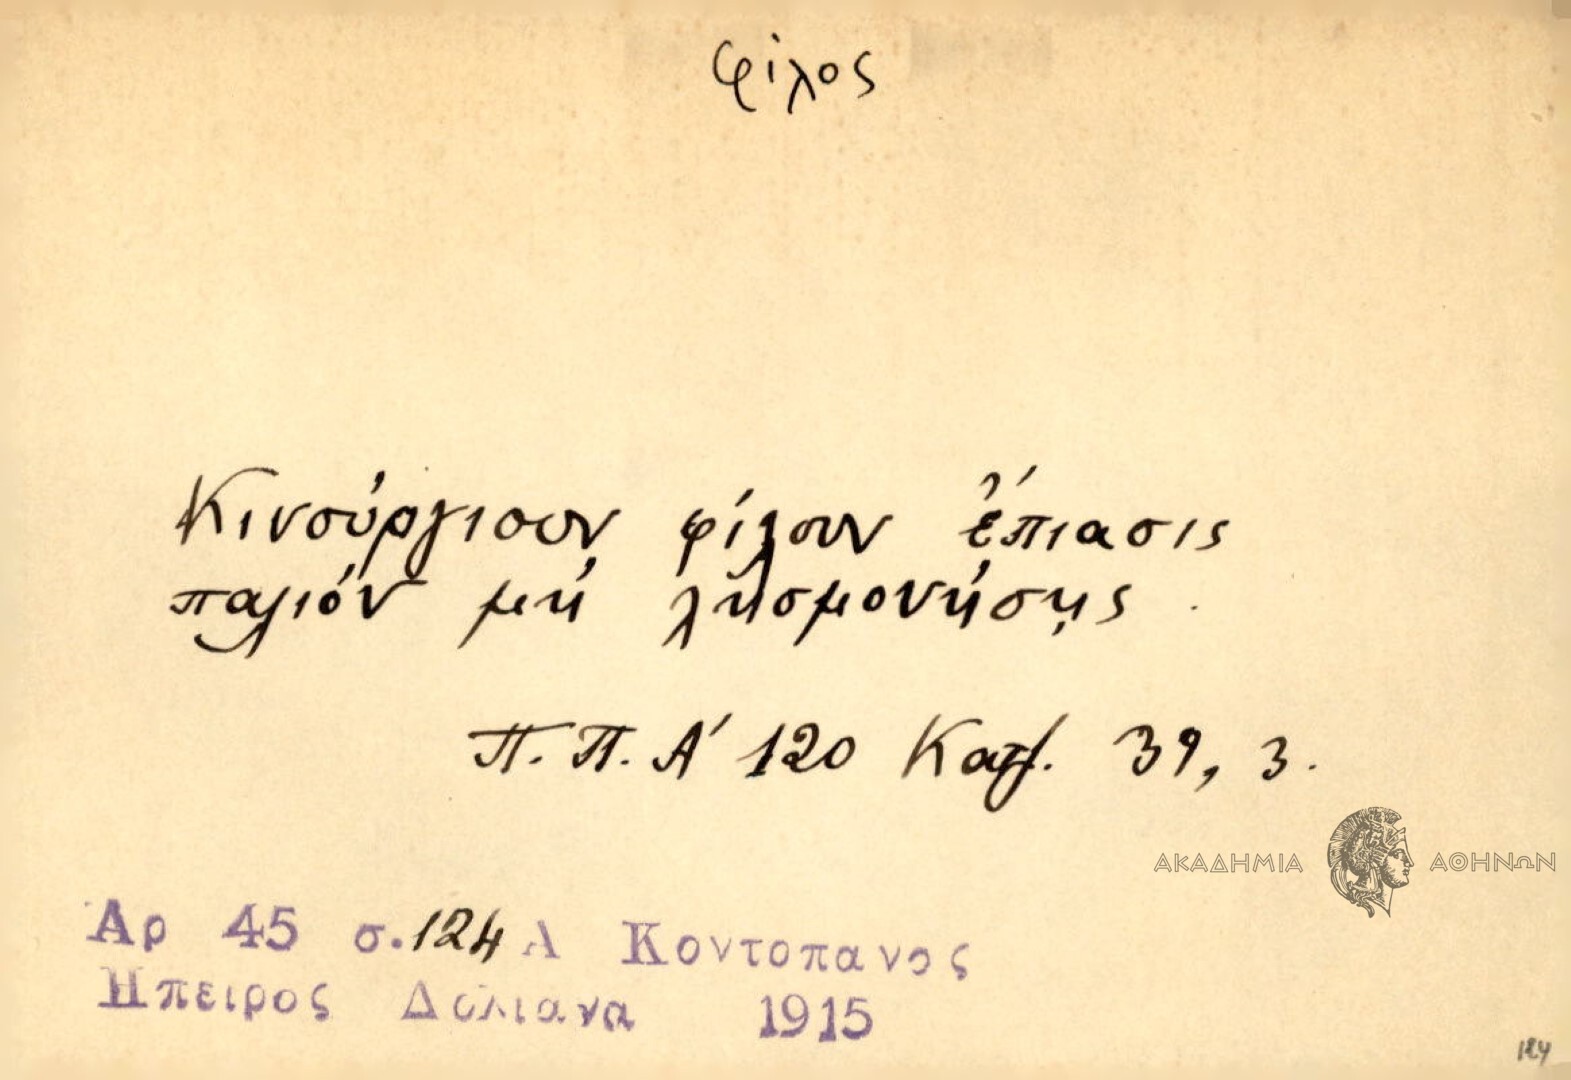 φίλος
Κινούργιουν φίλουν ἔπιασις
παλιόν μή λησμονήσῃς .
Π. Π. Α' 120 Κατ. 39, 3.
ΑΚΑΔΗΜΙΑ ΑΘΗΝΩΝ
Αρ 45 σ. 124 Α Κοντοπανος
Ηπειρος Δολιανα 1915
124